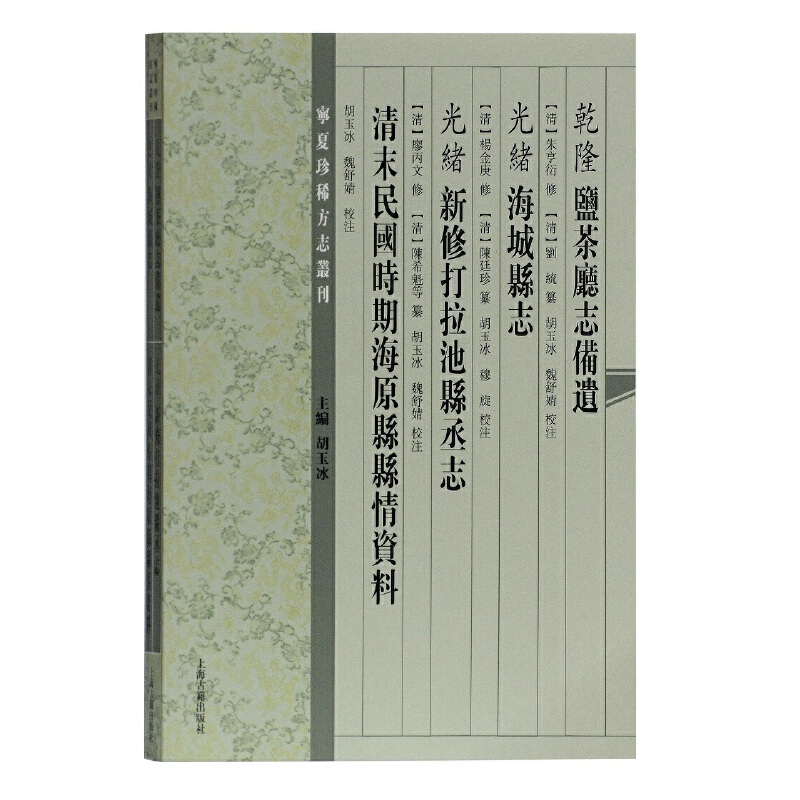 乾隆 鹽茶廳志備遺
【清】朱亨衍 修 【清】劉統 纂 胡玉冰 魏舒婧 校注
光緒 海城縣志
【清】楊金庚 修 【清】陳廷珍 纂 胡玉冰 穆旋 校注
光緒 新修打拉池縣丞志
【清】廖丙文 修 【清】陳希魁等 纂 胡玉冰 魏舒婧 校注
清末民國時期海原縣縣情資料
胡玉冰 魏舒婧 校注
寧夏珍稀方志叢刊
主編 胡玉冰
上海古籍出版社